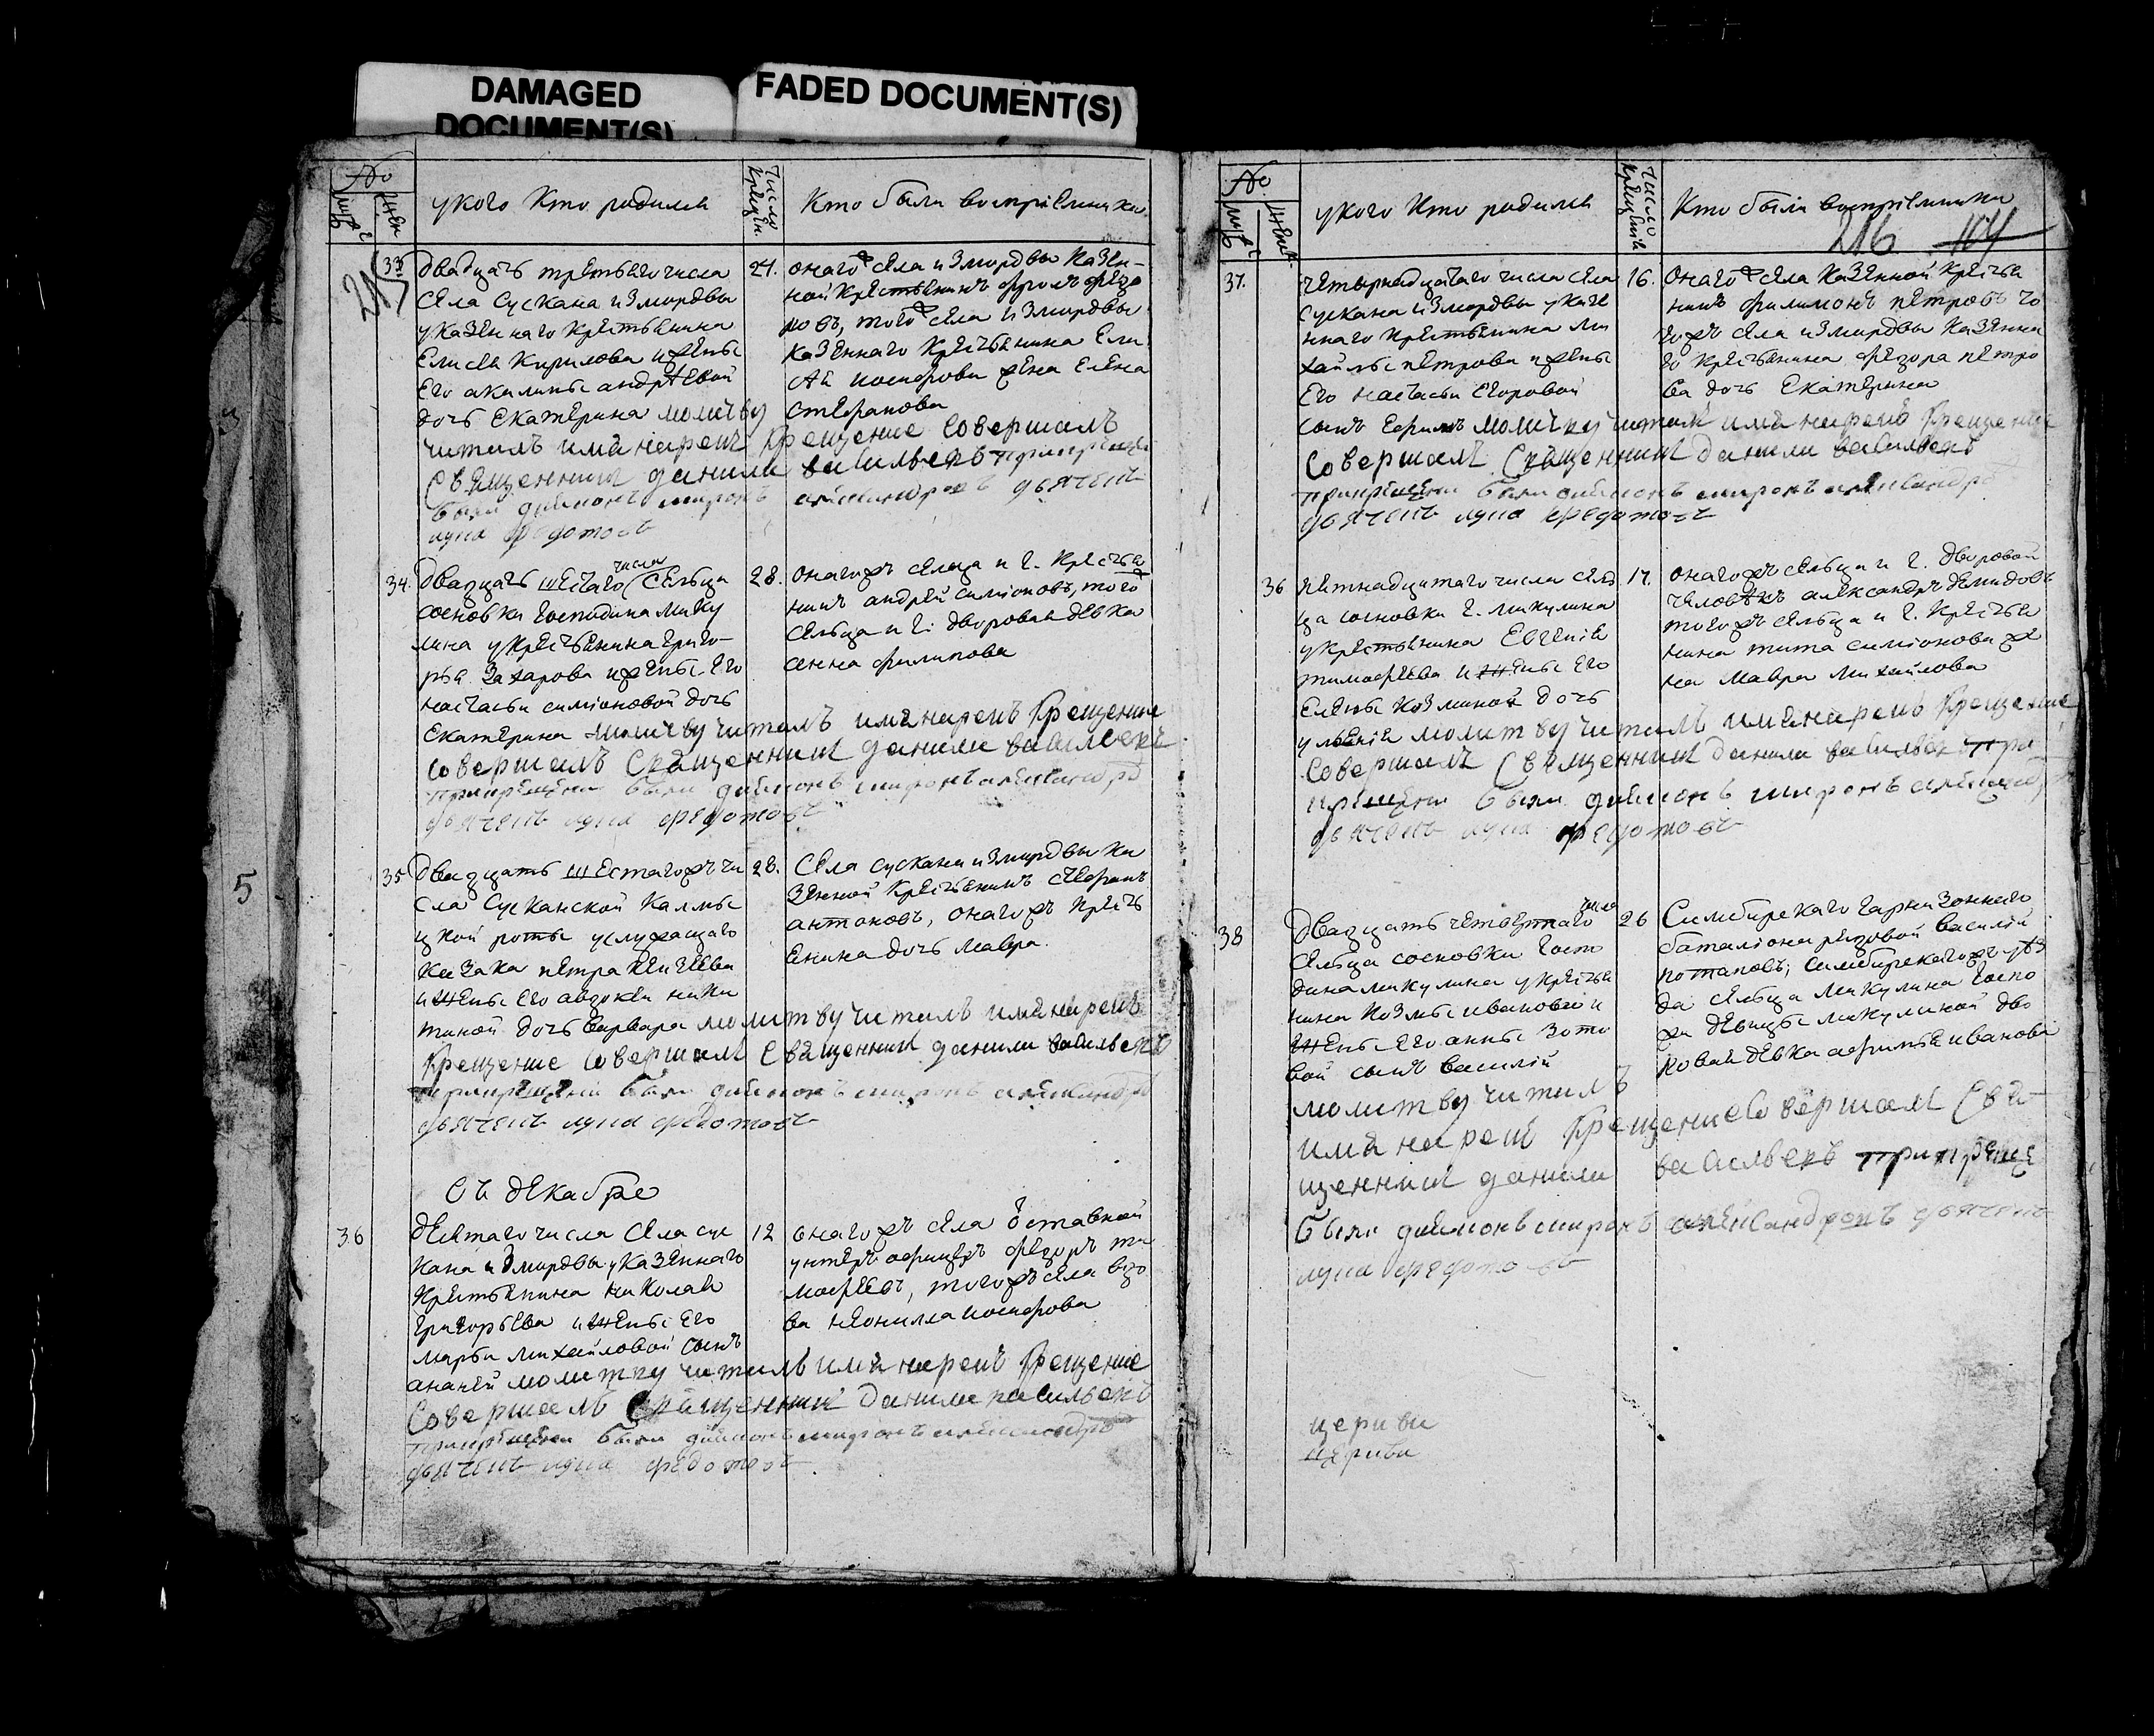 DAMAGED
DOCUMENT(S)
FADED DOCUMENT(S)
5
№
у кого кто родился
Число крещен.
Кто были восприемники
215
33
Двадцать третьего числа
села Сускана из мордвы
у казеннаго крестьянина
Елисея Кирилова и жены
его акилины андреевой
дочь Екатерина молитву
читалъ имя нарекъ крещение совершалъ
Священник данила васильевъ при крещении
были диаконъ миронъ александровъ дьячекъ
лука федотовъ
24.
онаго ж села из мордвы казен-
ной крестьянинъ фролъ федо
ровъ, того ж села из мордвы
казеннаго крестьянина Ели
сея иосифова жена Елена
стефанова
34.
Двадцать шестаго числа Сельца
сосновки господина Мику
лина у крестьянина григо-
рья Захарова и жены его
настасьи симионовой дочь
Екатерина молитву читалъ имя нарекъ крещение
совершалъ Священник данила васильевъ
при крещении были диаконъ миронъ александровъ
дьячекъ лука федотовъ
28.
онагожъ сельца и г. крестья
нинъ андрей симионовъ, того
сельца и г: дворовая девка
анна филипова
35
Двадцать шестагожъ чи
сла Сусканской калмы
цкой роты у служащаго
казака петра
и жены его авдокеи ники
тиной дочь варвара молитву читалъ имя нарекъ
крещение совершалъ Священник данила васильевъ
при крещении были диаконъ миронъ александровъ
дьячекъ лука федотовъ
28.
Села сускана из мордвы ка
зенной крестьянинъ стефанъ
антоновъ, онагожъ кресть
енина дочь Мавра.
въ декабре
36
девятаго числа Села сус
кана из мордвы у казеннаго
крестьянина николая
григорьева и жены его
марьи михайловой сынъ
ананей молитву читалъ имя нарекъ крещение
совершалъ Священник данила васильевъ
при крещении были диаконъ миронъ александровъ
дьячекъ лука федотовъ
12
онагожъ села оставной
унтеръ афицеръ федоръ ти
мофеевъ, тогожъ села вдо
ва неонилла иосифова
№
у кого кто родился
Число крещения
Кто были восприемники
216 104
37.
четырнадцатаго числа села
сускана из мордвы у казе
ннаго крестьянина ми
хайлы петрова и жены
его настасьи Егоровой
сынъ Ефимъ молитву читалъ имя нарекъ крещение
совершалъ Священник данила васильевъ
при крещении были диаконъ миронъ александровъ
дьячекъ лука федотовъ
16.
онаго ж села казенной крестья
нинъ филимонъ петровъ то
гожъ села из мордвы казенна
го крестьянина федора петро
ва дочь Екатерина
36
пятнадцатаго числа сель
ца сосновки г. микулина
у крестьянина Евгения
тимофеева и жены его
Елены козминой дочь
молитву читалъ имя нарекъ крещение
совершалъ Священник данила васильевъ при
крещении были диаконъ миронъ александровъ
дьячекъ лука федотовъ
17.
онагожъ сельца и г. дворовой
человекъ александръ демидовъ
тогожъ сельца и г. крестья
нина тита симионова же
на Мавра михайлова
38
Двадцать четвертаго числа
сельца сосновки госпо
дина микулина у крестья
нина козмы иванова и
жены его анны зото
вой сынъ василий
молитву читалъ
имя нарекъ крещение совершалъ Свя-
щенник данила васильевъ при креще
были диаконъ миронъ александровъ дьячекъ
лука федотовъ
26
Симбирскаго гарнизоннаго
баталиона рядовой василий
потаповъ; Симбирскагожъ уез
да сельца Микулина госпо
жи девицы микулиной дво
ровая девка афимья иванова
церкви
церкви